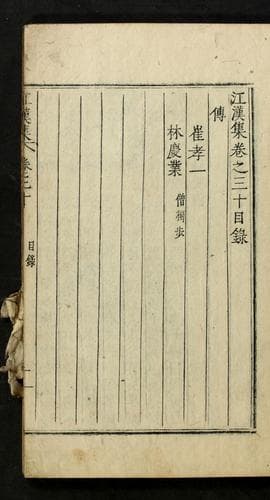 江漢集卷之三十目錄
傳
崔孝一
林慶業 僧獨步
江漢集 卷之三十
目錄
一